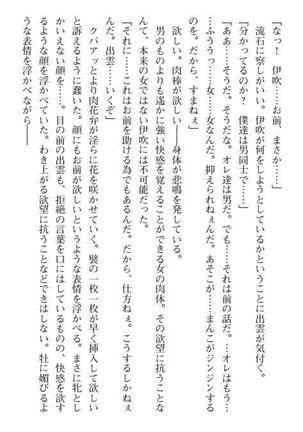 「なっ！　伊吹……お前、まさか……」
流石に察しがいい。伊吹が何をしようとしているかということに出雲が気付く。
「分かってるのか？　僕達は男同士で……」
「ああ……そうだ。そうだな。オレ達は男だ。でも……それは前の話だ。……オレはもう…
…ふううっ……女……女なんだ。抑えられねぇんだ。あそこが……まんこがジンジンする
のを。だから、すまねぇ」
欲しい。肉棒が欲しい――身体が悲鳴を発している。
男のものよりも遙かに強い快感を覚えることができる女の肉体。その欲望に抗うことな
んて、本来の女ではない伊吹には不可能だった。
「それに……これはお前を助ける為でもあるんだ。だから、仕方ねぇ。こうするしかねぇ
んだ。出雲……いくぞ」
クパアッとより肉花弁が淫らに花を咲かせていく。襞の一枚一枚が早く挿入して欲しい
と訴えるように蠢いた。顔にもお前が欲しいというような表情を浮かべる。まさに牝とし
かいえない顔を……。目の前の出雲も、拒絶の言葉を口にはしているものの、快感を訴え
るような顔を浮かべていた。わき上がる欲望に抗うことなどできはしない。牡に媚びるよ
うな表情を浮かべながら――